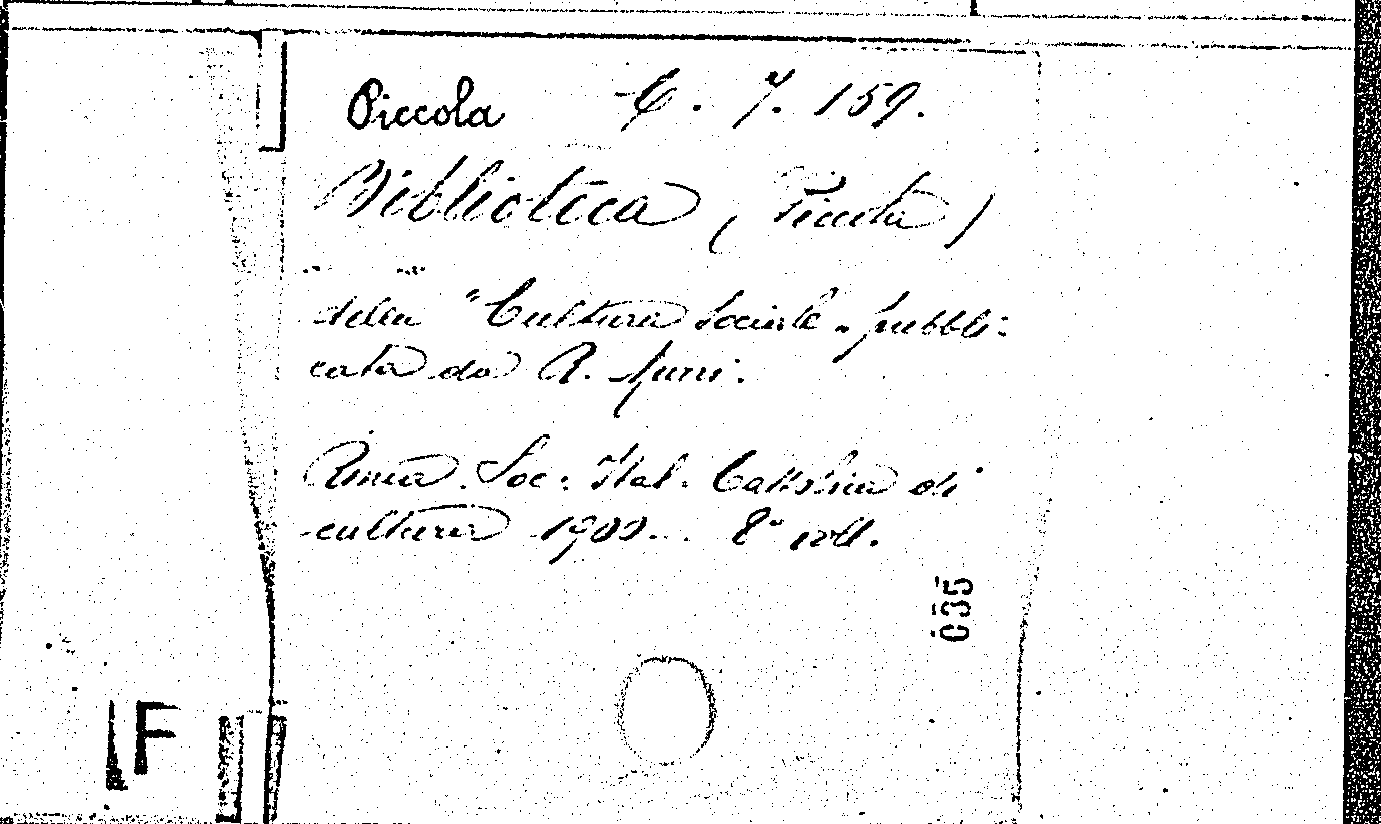 Piccola C. 7. 159.
Biblioteca (Piccola)
della "Cultura Sociale" pubbli-
cata da R. Murri.
Roma. Soc. Ital. Cattolica di
cultura 1900. 8° voll.
035
F